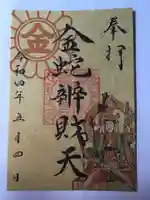 奉拝
金蛇辨財天
令和四年五月四日
金